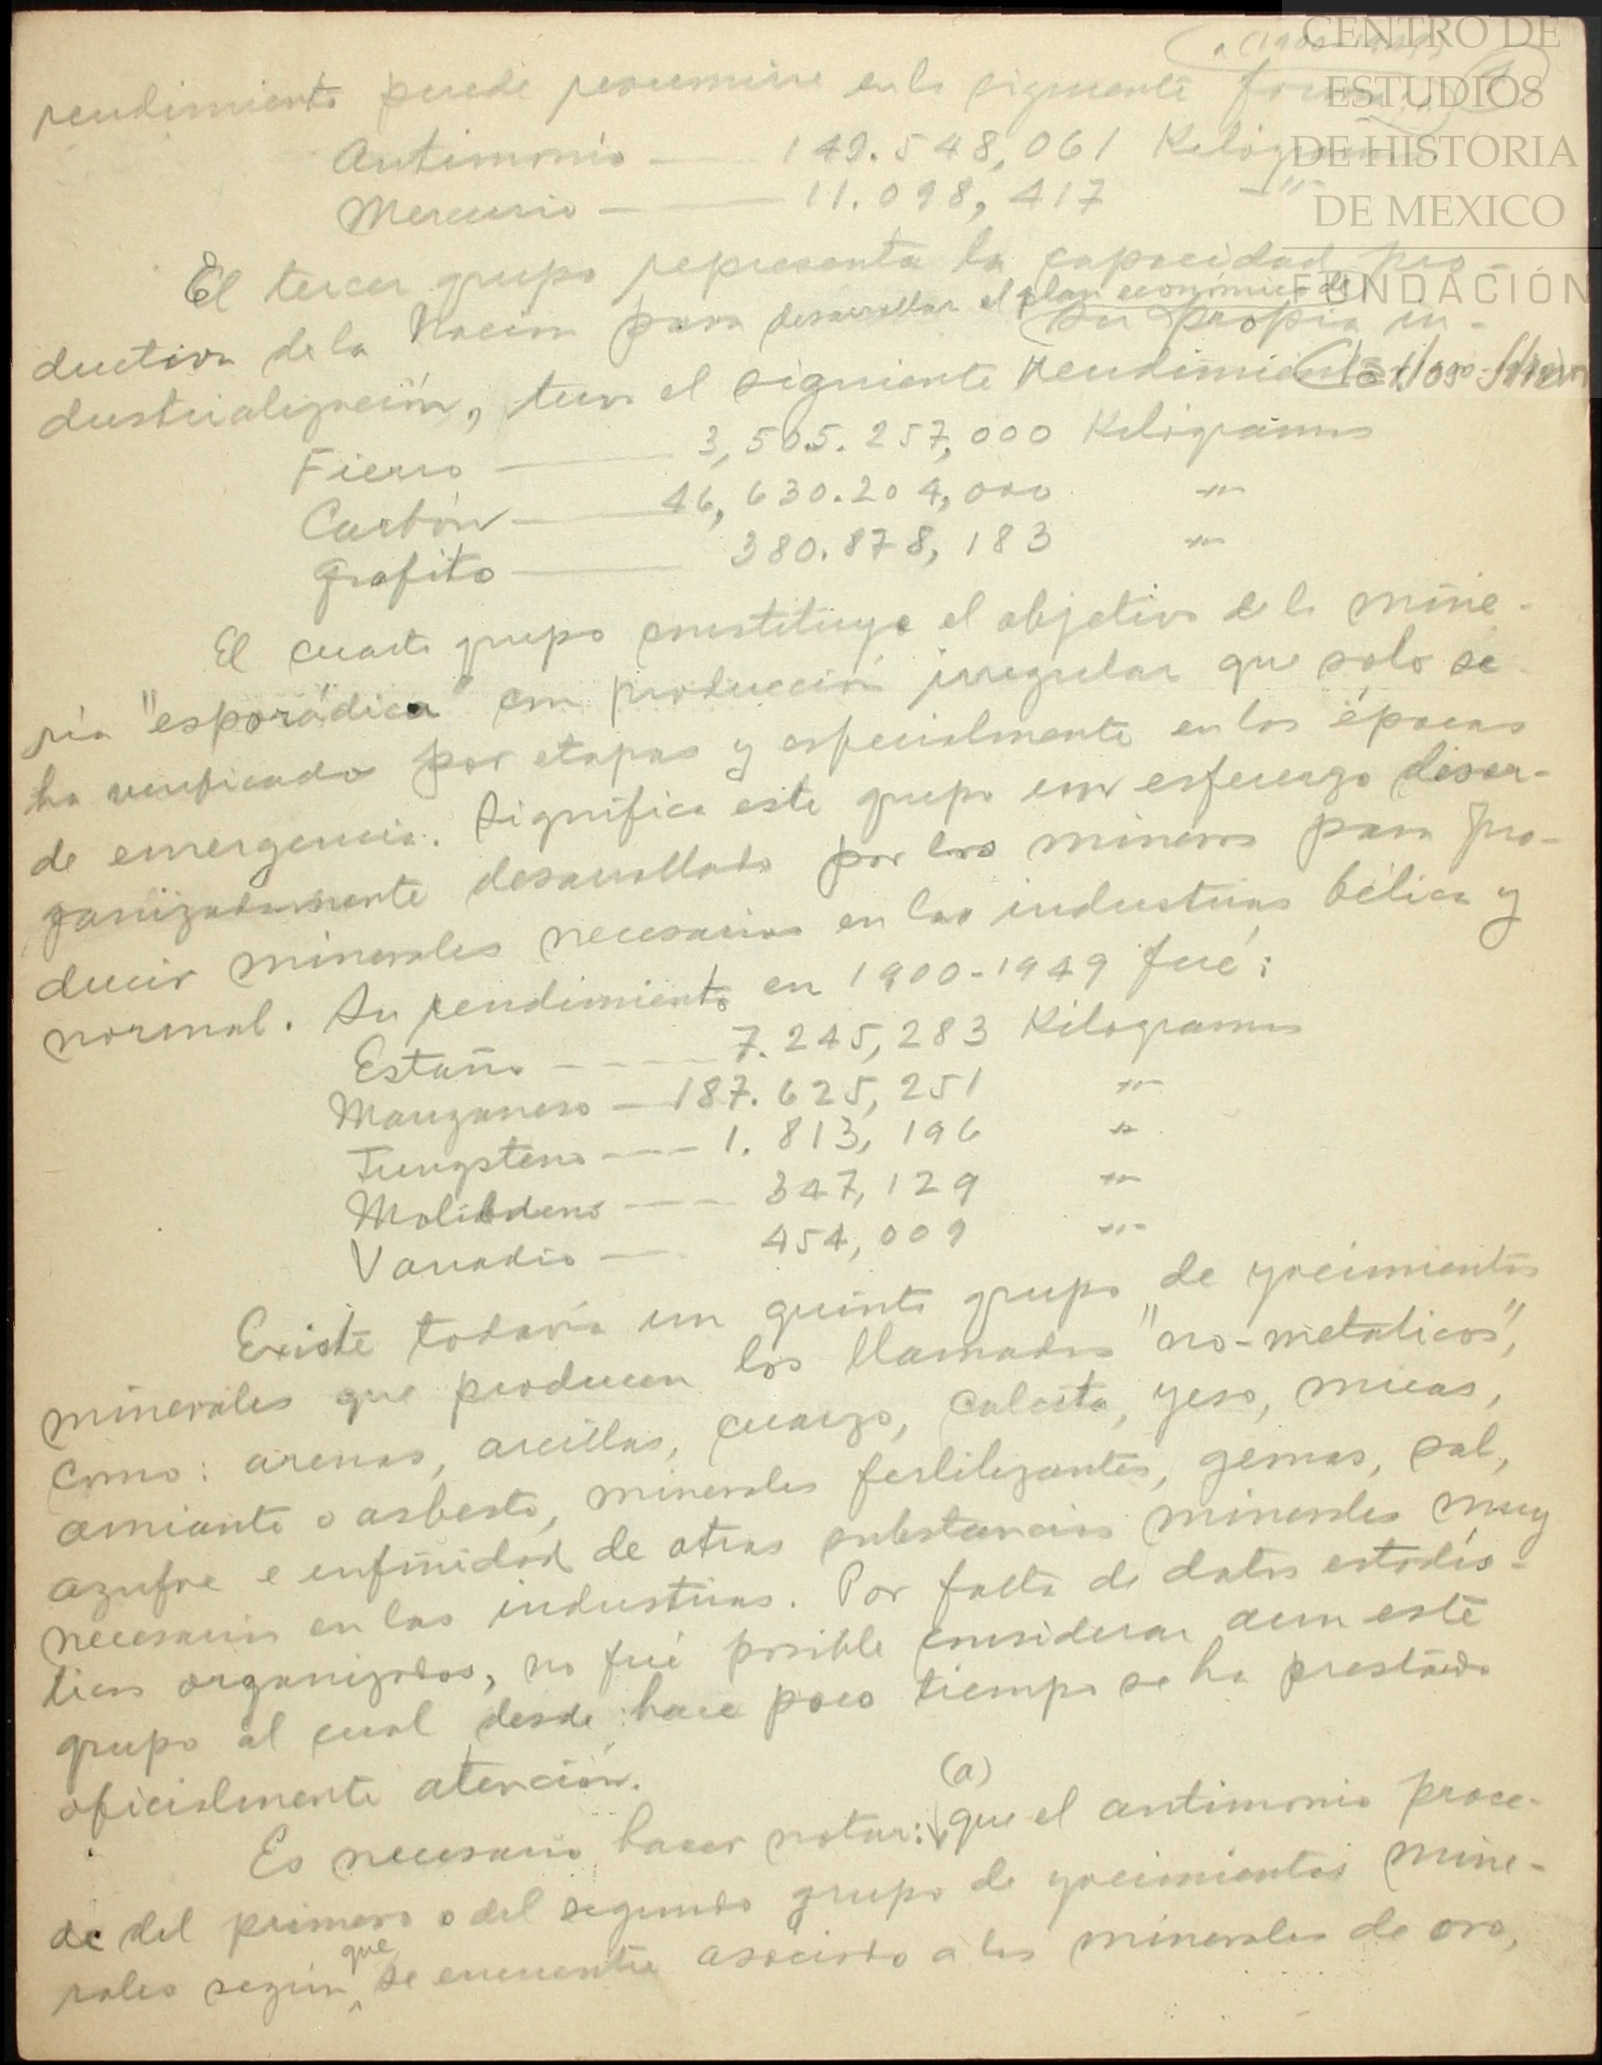 CENTRO DE
ESTUDIOS
DE HISTORIA
DE MEXICO
FUNDACIÓN
rendimiento puede resumirse en la siguiente forma:
Antimonio — 149.548,061 Kilogramos
Mercurio — 11.098,417 -"-
El tercer grupo representa la capacidad pro-
ductiva de la Nación para desarrollar el plan económico de su propia in-
dustrialización, tuvo el siguiente rendimiento
Fierro — 3,505.257,000 Kilogramos
Carbón — 46,630.204,000 -"-
Grafito — 380.878,183 -"-
El cuarto grupo constituye el objetivo de la mine-
ría "esporádica" con producción irregular que solo se
ha verificado por etapas y especialmente en las épocas
de emergencia. Significa este grupo un esfuerzo desor-
ganizadamente desarrollado por los mineros para pro-
ducir minerales necesarios en las industrias bélica y
normal. Su rendimiento en 1900-1949 fué:
Estaño — 7.245,283 Kilogramos
Manganeso — 187.625,251 -"-
Tungsteno — 1.813,196 -"-
Molibdeno — 347,129 -"-
Vanadio — 454,009 -"-
Existe todavía un quinto grupo de yacimientos
minerales que producen los llamados "no-metalicos",
como: arenas, arcillas, cuarzo, calcita, yeso, micas,
amianto o asbesto, minerales fertilizantes, gemas, sal,
azufre e enfinidad de otras substancias minerales muy
necesarias en las industrias. Por falta de datos estadís-
ticos organizados, no fué posible considerar aun este
grupo al cual desde hace poco tiempo se ha prestado
oficialmente atención.
Es necesario hacer notar: (a) que el antimonio proce-
de del primero o del segundo grupo de yacimientos mine-
rales según que se encuentre asociado a los minerales de oro,